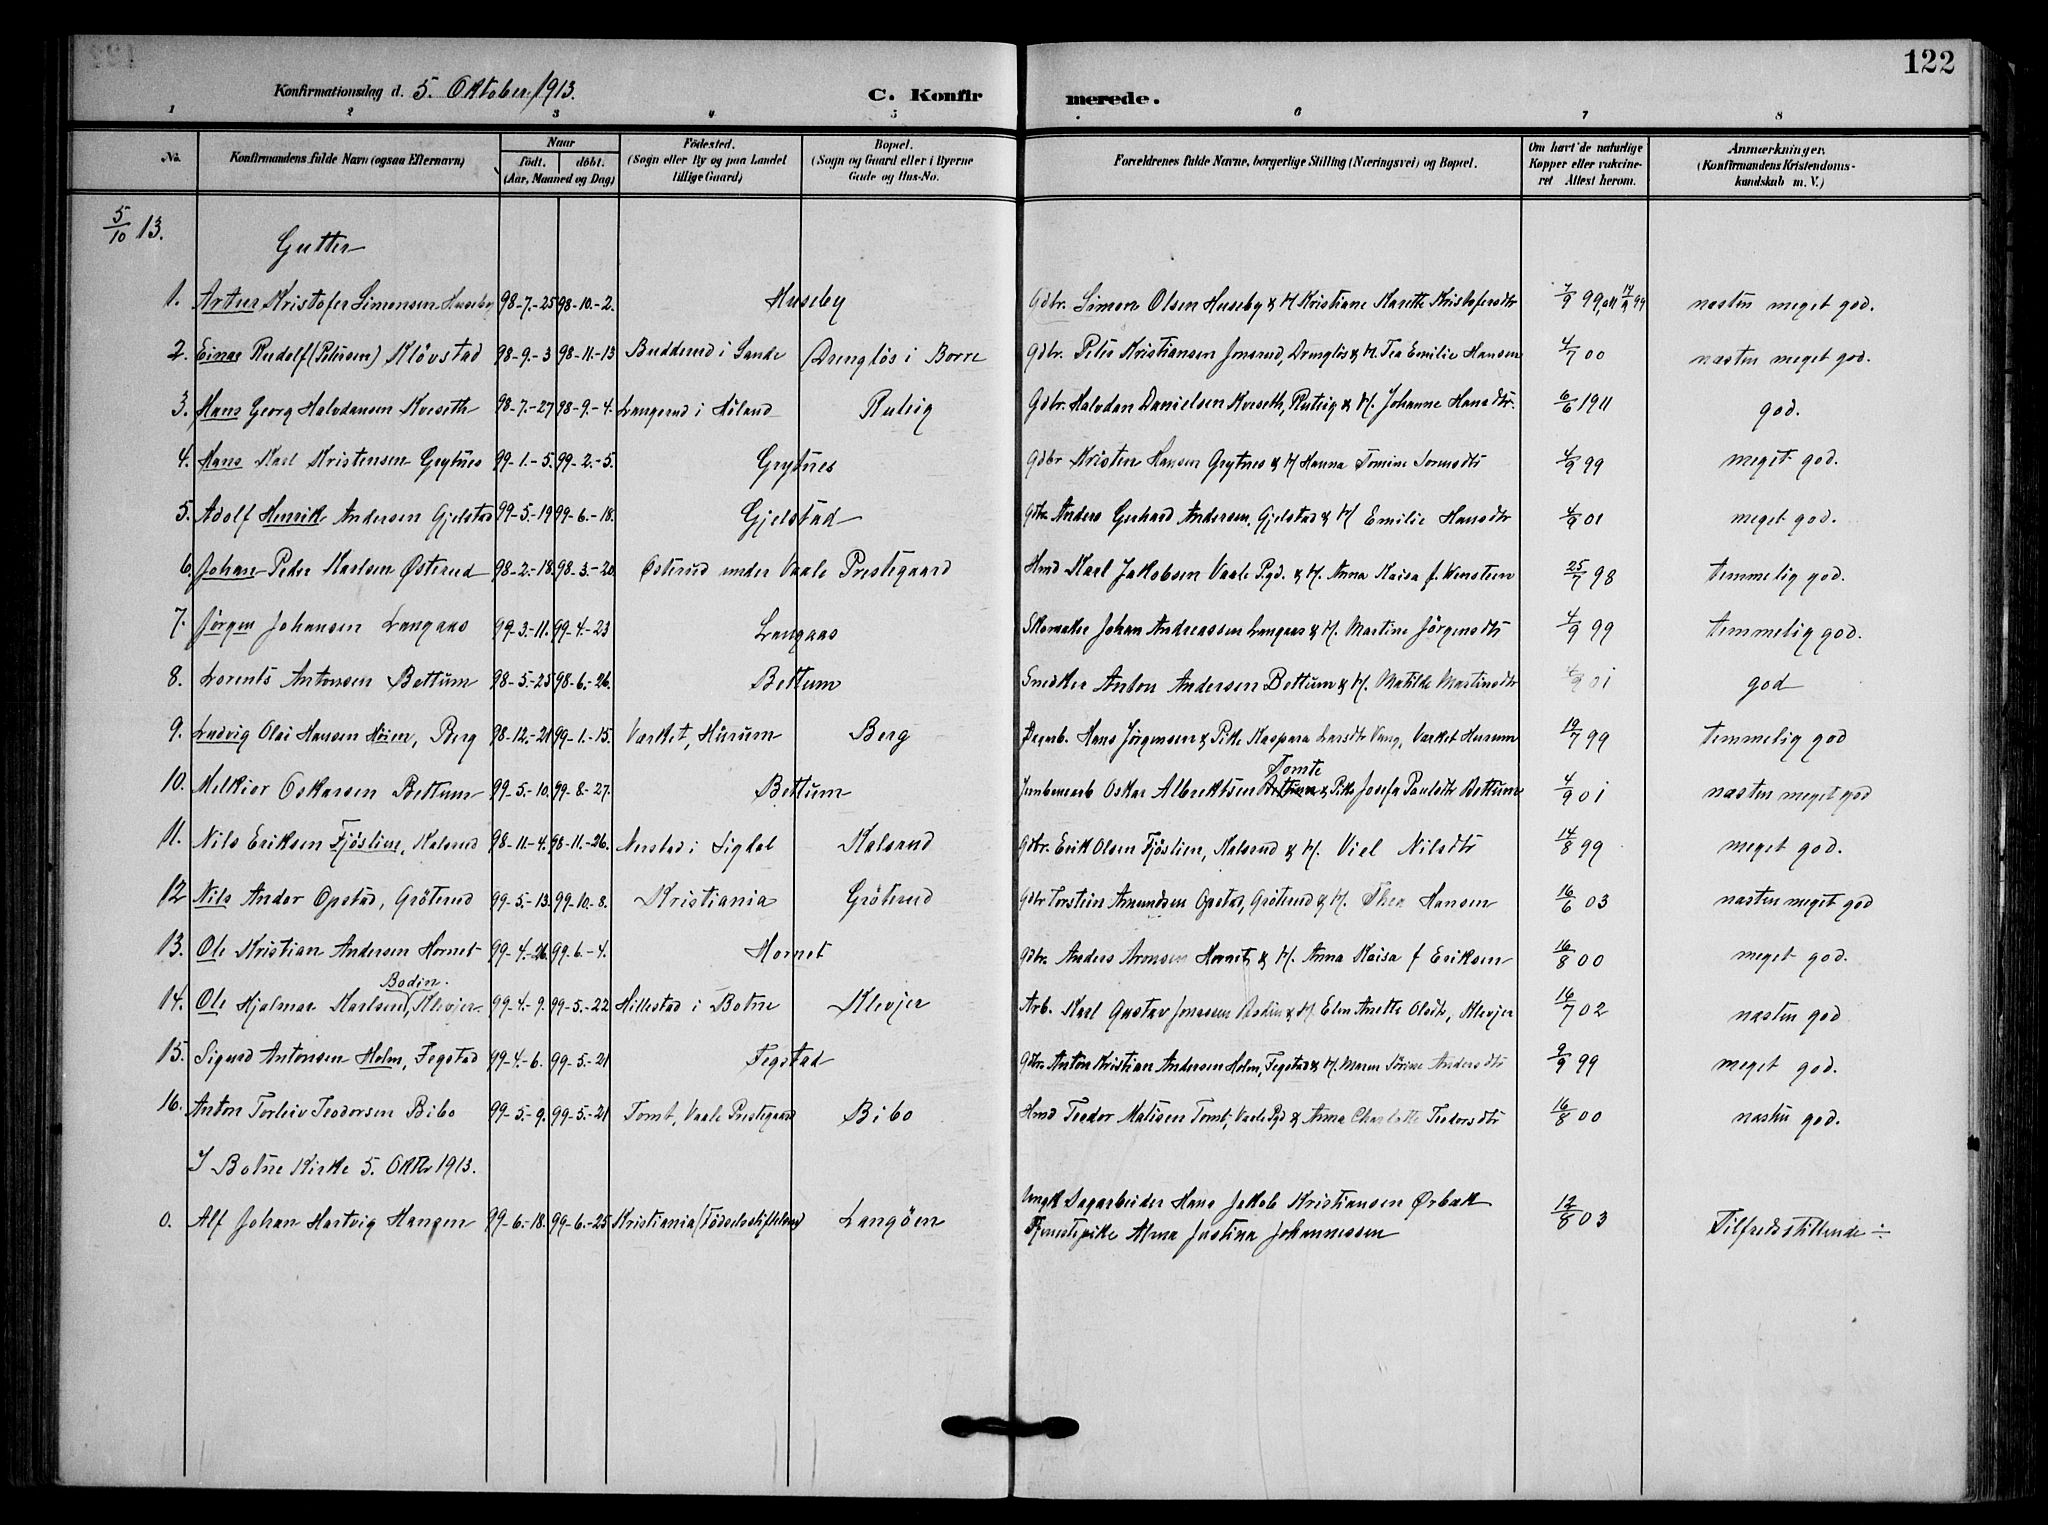 122
Konfirmationsdag d. 5. Oktober 1913. C. Konfirmerede.
1 2 3 4 5 6 7 8
No. Konfirmandens fulde Navn (ogsaa Efternavn) Naar født. døbt. (Aar, Maaned og Dag) Fødested. (Sogn eller By og paa Landet tillige Gaard) Bopæl. (Sogn og Gaard eller i Byerne Gade og Hus-No. Forældrenes fulde Navne, borgerlige Stilling (Næringsvei) og Bopæl. Om havt de naturlige Kopper eller vakcineret Attest herom. Anmærkninger. (Konfirmandens Kristendomskundskab m. V.)
5/10 13.
Gutter
1. Artur Kristofer Simensen Huseby 98-7.-25 98-10.-2. Huseby Gdbr. Simon Olsen Huseby & H. Kristiane Marethe Kristofersdtr 7/9 99, og 14/9 99 næsten meget god.
2. Einar Rudolf (Petersen) Klövstad 98-9.-3 98-11.-13 Budderud i Sande Drengløs i Borre Gdbr. Peter Kristiansen Jonsrud, Drengløs & H. Tea Emilie Hansen 4/7 00 næsten meget god.
3. Hans Georg Halvdansen Kveseth 98-7.-27 98-9.-4. Langerud i Høland Rutvig Gdbr. Halvdan Danielsen Kveseth, Rutvig & H. Johanne Hansdtr. 6/6 1911 god.
4. Hans Karl Kristensen Grytnes 99-1.-5. 99-2.-5. Grytnes Gdbr Kristen Hansen Grytnes & H Hanna Tomine 4/9 99 meget god.
5. Adolf Henrik Andersen Gjelstad 99-5.-19 99-6.-18. Gjelstad Gdbr. Anders Gerhard Andersen, Gjelstad & H Emilie Hansdtr 4/9 01 meget god.
6. Johan Peder Karlsen Østerud 98-2.-18. 98-3.-20. Østerud under Vaale Prestegaard Hmd Karl Jakobsen Vaale Pgd. & H. Anna Kaisa f. 25/7 98 temmelig god.
7. Jørgen Johansen Langaas 99-3.-11. 99-4.-23 Langaas Skomaker Johan Andreassen Langaas & H. Martine Jörgensdtr 4/9 99 temmelig god.
8. Lorents Antonsen Bettum 98-5.-25 98-6.-26. Bettum Snedker Anton Andersen Bettum & H. Matilde Martinsdtr 4/9 01 god
9. Ludvig Olai Hansen Höien, Berg 98-12.-21 99-1.-15. Varket, Hurum Berg Dagarb. Hans Jörgensen & Pike Kaspara Larsdtr Vang, Varket Hurum 19/7 99 temmelig god
10. Melkior Oskarsen Bettum 99-5.-10. 99-8.-27. Bettum Jernbanearb Oskar Albrektsen Bettum Tomte & Pike Josefa Paulsdtr Bettum 4/9 01 næsten meget god
11. Nils Eriksen Fjösline, Kalsrud 98-11.-4. 98-11.-26. Nerstad i Sigdal Kalsrud Gdbr. Erik Olsen Fjöslien, Kalsrud & H. Viel Nilsdtr 14/8 99 meget god.
12 Nils Ander Opstad, Gröterud 99-5.-13. 99-10.-8. Kristiania Gröterud Gdbr Torstein Amundsen Opstad, Gröterud & H. Thea Hansen 16/6 03 næsten meget god
13. Ole Kristian Andersen Hornet 99-4.-26. 99-6.-4. Hornet Gdbr. Anders Aronsen Hornet & H. Anna Kaisa f Eriksen 16/8 00 meget god.
14. Ole Hjalmar Karlsen Bodin, Klevjer. 99-4.-9. 99-5.-22 Hillestad i Botne Klevjer Arb. Karl Gustav Jonassen Bodin & H. Elen Anette Olsdtr, Klevjer 16/7 02 næsten god
15. Sigurd Antonsen Holm, Fegstad 99-4.-6. 99-5.-21 Fegstad Gdbr. Anton Kristian Andersen Holm, Fegstad & H. Maren Sörine Andersdtr 9/9 99 meget god.
16. Anton Torleiv Teodorsen Bibo 99-5.-9. 99-5.-21 Tomt, Vaale Prestegaard Bibo Hmd Teodor Matisen Tomt, Vaale Pgd & Anna Charlotte Teodorsdtr 16/8 00 næsten god.
I Botne Kirke 5. Oktbr 1913.
0. Alf Johan Hartvig Hansen 99-6.-18. 99-6.-25. Kristiania (Födselsstiftelsen) Langöen Ungk Dagarbeider Hans Jakob Kristiansen Ørbæk
Tjenestepike Alma Justina Johannessen 12/8 03 Tilfredsstillende ÷